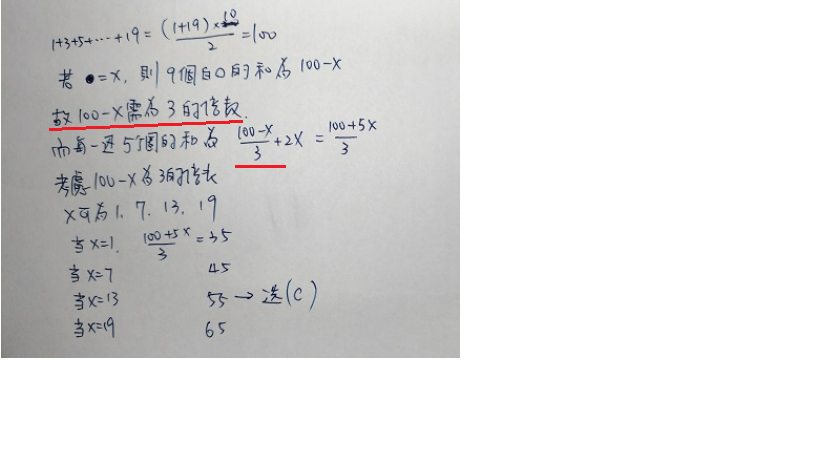 1+3+5+⋯+19 = (1+19)×10/2 = 100
若 ●=X, 則9個白○的和為 100-X
故 100-X 需為 3 的倍數.
而每一邊5個的和為 (100-X)/3 + 2X = (100+5X)/3
考慮 100-X 為 3的倍數
X可為 1, 7, 13, 19
當 X=1, (100+5X)/3 = 35
當 X=7 45
當 X=13 55 → 選(C)
當 X=19 65